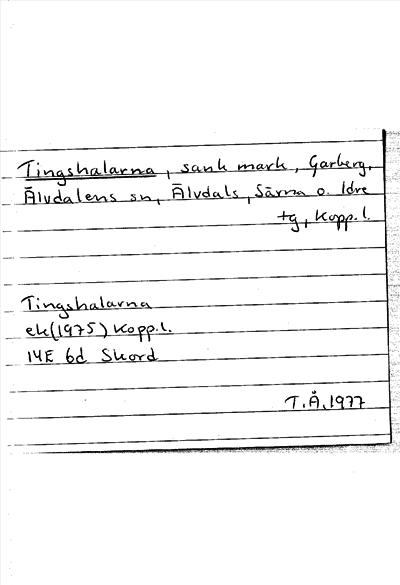 Tingshalarna, sank mark, Garberg,
Älvdalens sn, Älvdals, Särna o. Idre
tg, Kopp.l.
Tingshalarna
ek(1975) Kopp.l.
14E 6d Skord
T.Å. 1977